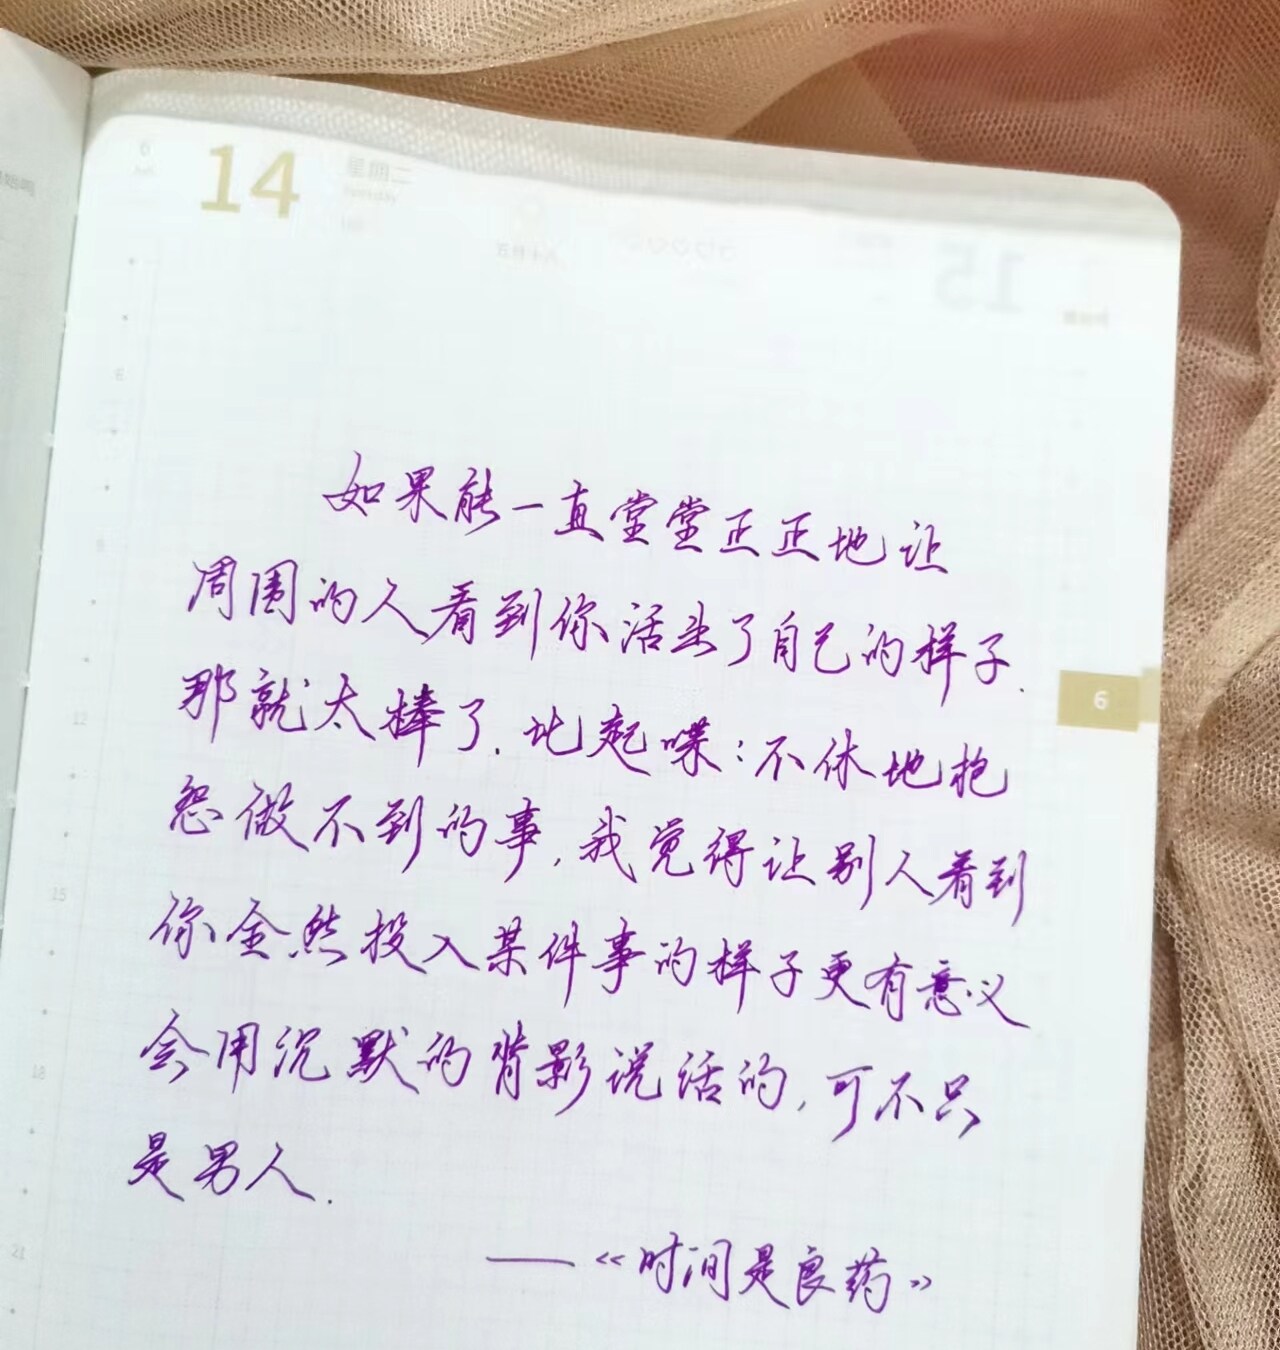 14 星期二
如果能一直堂堂正正地让
周围的人看到你活出了自己的样子.
那就太棒了.比起喋:不休地抱
怨做不到的事,我觉得让别人看到
你全然投入某件事的样子更有意义
会用沉默的背影说话的,可不只
是男人.
——《时间是良药》
6
12
15
18
21